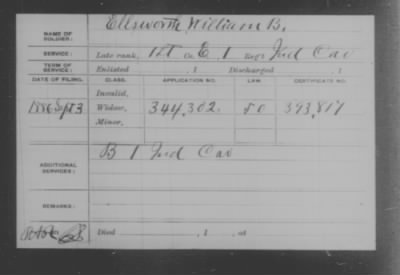 NAME OF SOLDIER: Ellsworth, William B.
SERVICE: Late rank, 1st Co. E 1 Reg't Ind Cav
TERM OF SERVICE: Enlisted , 1 Discharged , 1
DATE OF FILING. CLASS. APPLICATION NO. LAW. CERTIFICATE NO.
Invalid,
1886 Sept 3 Widow, 344,302. 393,817
Minor,
ADDITIONAL SERVICES: B 1 Ind Cav
REMARKS:
Died , 1 , at